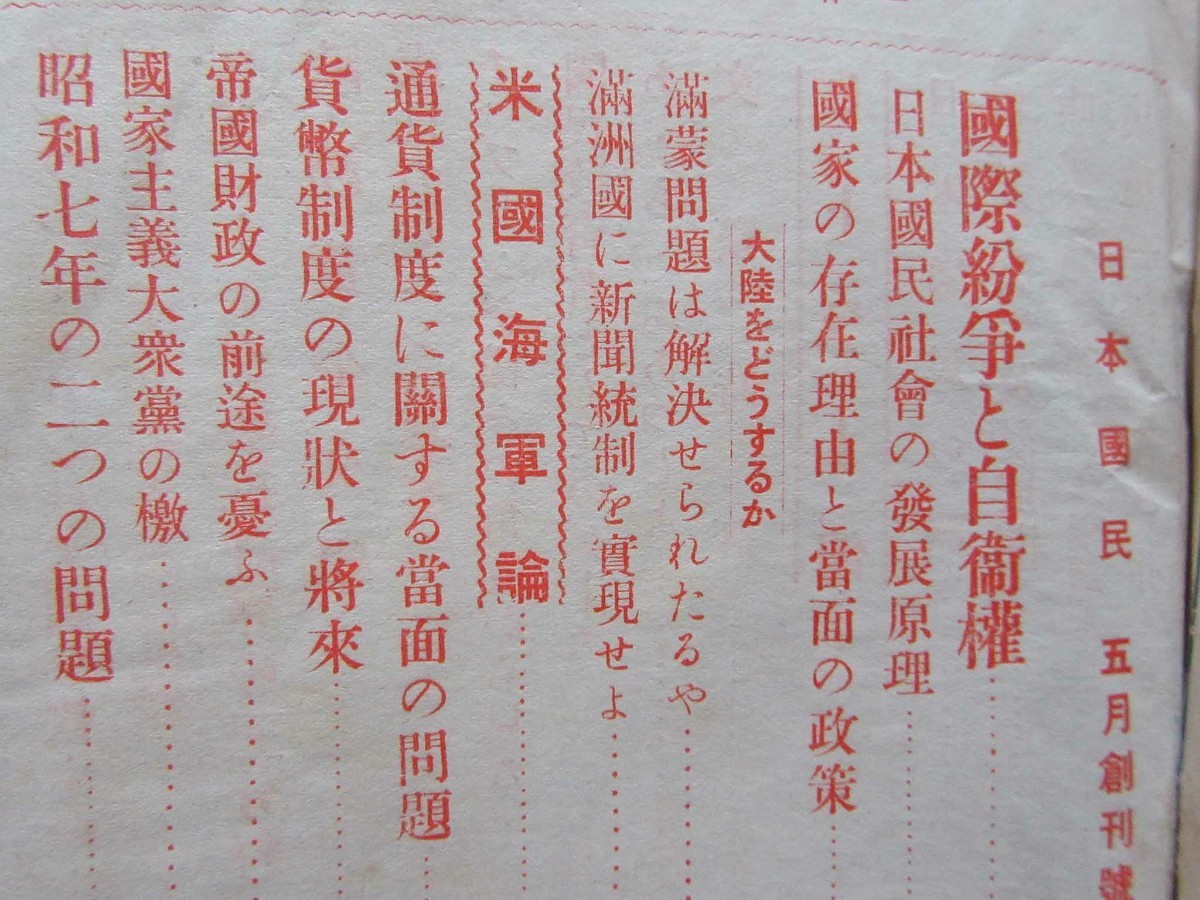 日本國民 五月創刊號
國際紛爭と自衞權
日本國民社會の發展原理
國家の存在理由と當面の政策
大陸をどうするか
滿蒙問題は解決せられたるや
滿洲國に新聞統制を實現せよ
米國海軍論
通貨制度に關する當面の問題
貨幣制度の現狀と將來
帝國財政の前途を憂ふ
國家主義大衆黨の檄
昭和七年の二つの問題